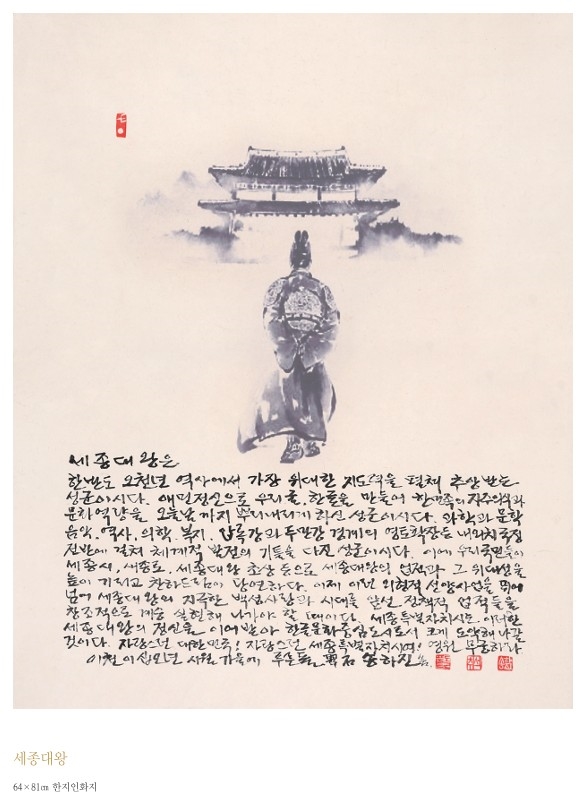 세종대왕은
한반도 오천년 역사에서 가장 위대한 지도력을 펼쳐 추앙받는
성군이시다. 애민정신으로 우리글, 한글을 만들어 한민족의 자주의식과
문화역량을 오늘날까지 뿌리내리게 하신 성군이시다. 과학과 문학
음악, 역사, 의학, 복지, 압록강과 두만강 경계의 영토확장 등 내외치 국정
전반에 걸쳐 체계적 발전의 기틀을 다진 성군이시다. 이에 우리국민들이
세종시, 세종로, 세종대왕 초상 등으로 세종대왕의 업적과 그 위대성을
높이 기리고 찬하드림이 당연하다. 이제 이런 외형적 선양사업을 뛰어
넘어 세종대왕의 지극한 백성사랑과 시대를 앞선 정책적 업적들을
창조적으로 계승 실현해 나가야 할 때이다. 세종특별자치시는 이러한
세종대왕의 정신을 이어받아 한글문화중심도시로서 크게 도약해 나갈
것이다. 자랑스런 대한민국! 자랑스런 세종특별자치시여! 영원 무궁하라
이천이십오년 시월 가을에 푸른돌 石 송하진
세종대왕
64×81㎝ 한지인화지